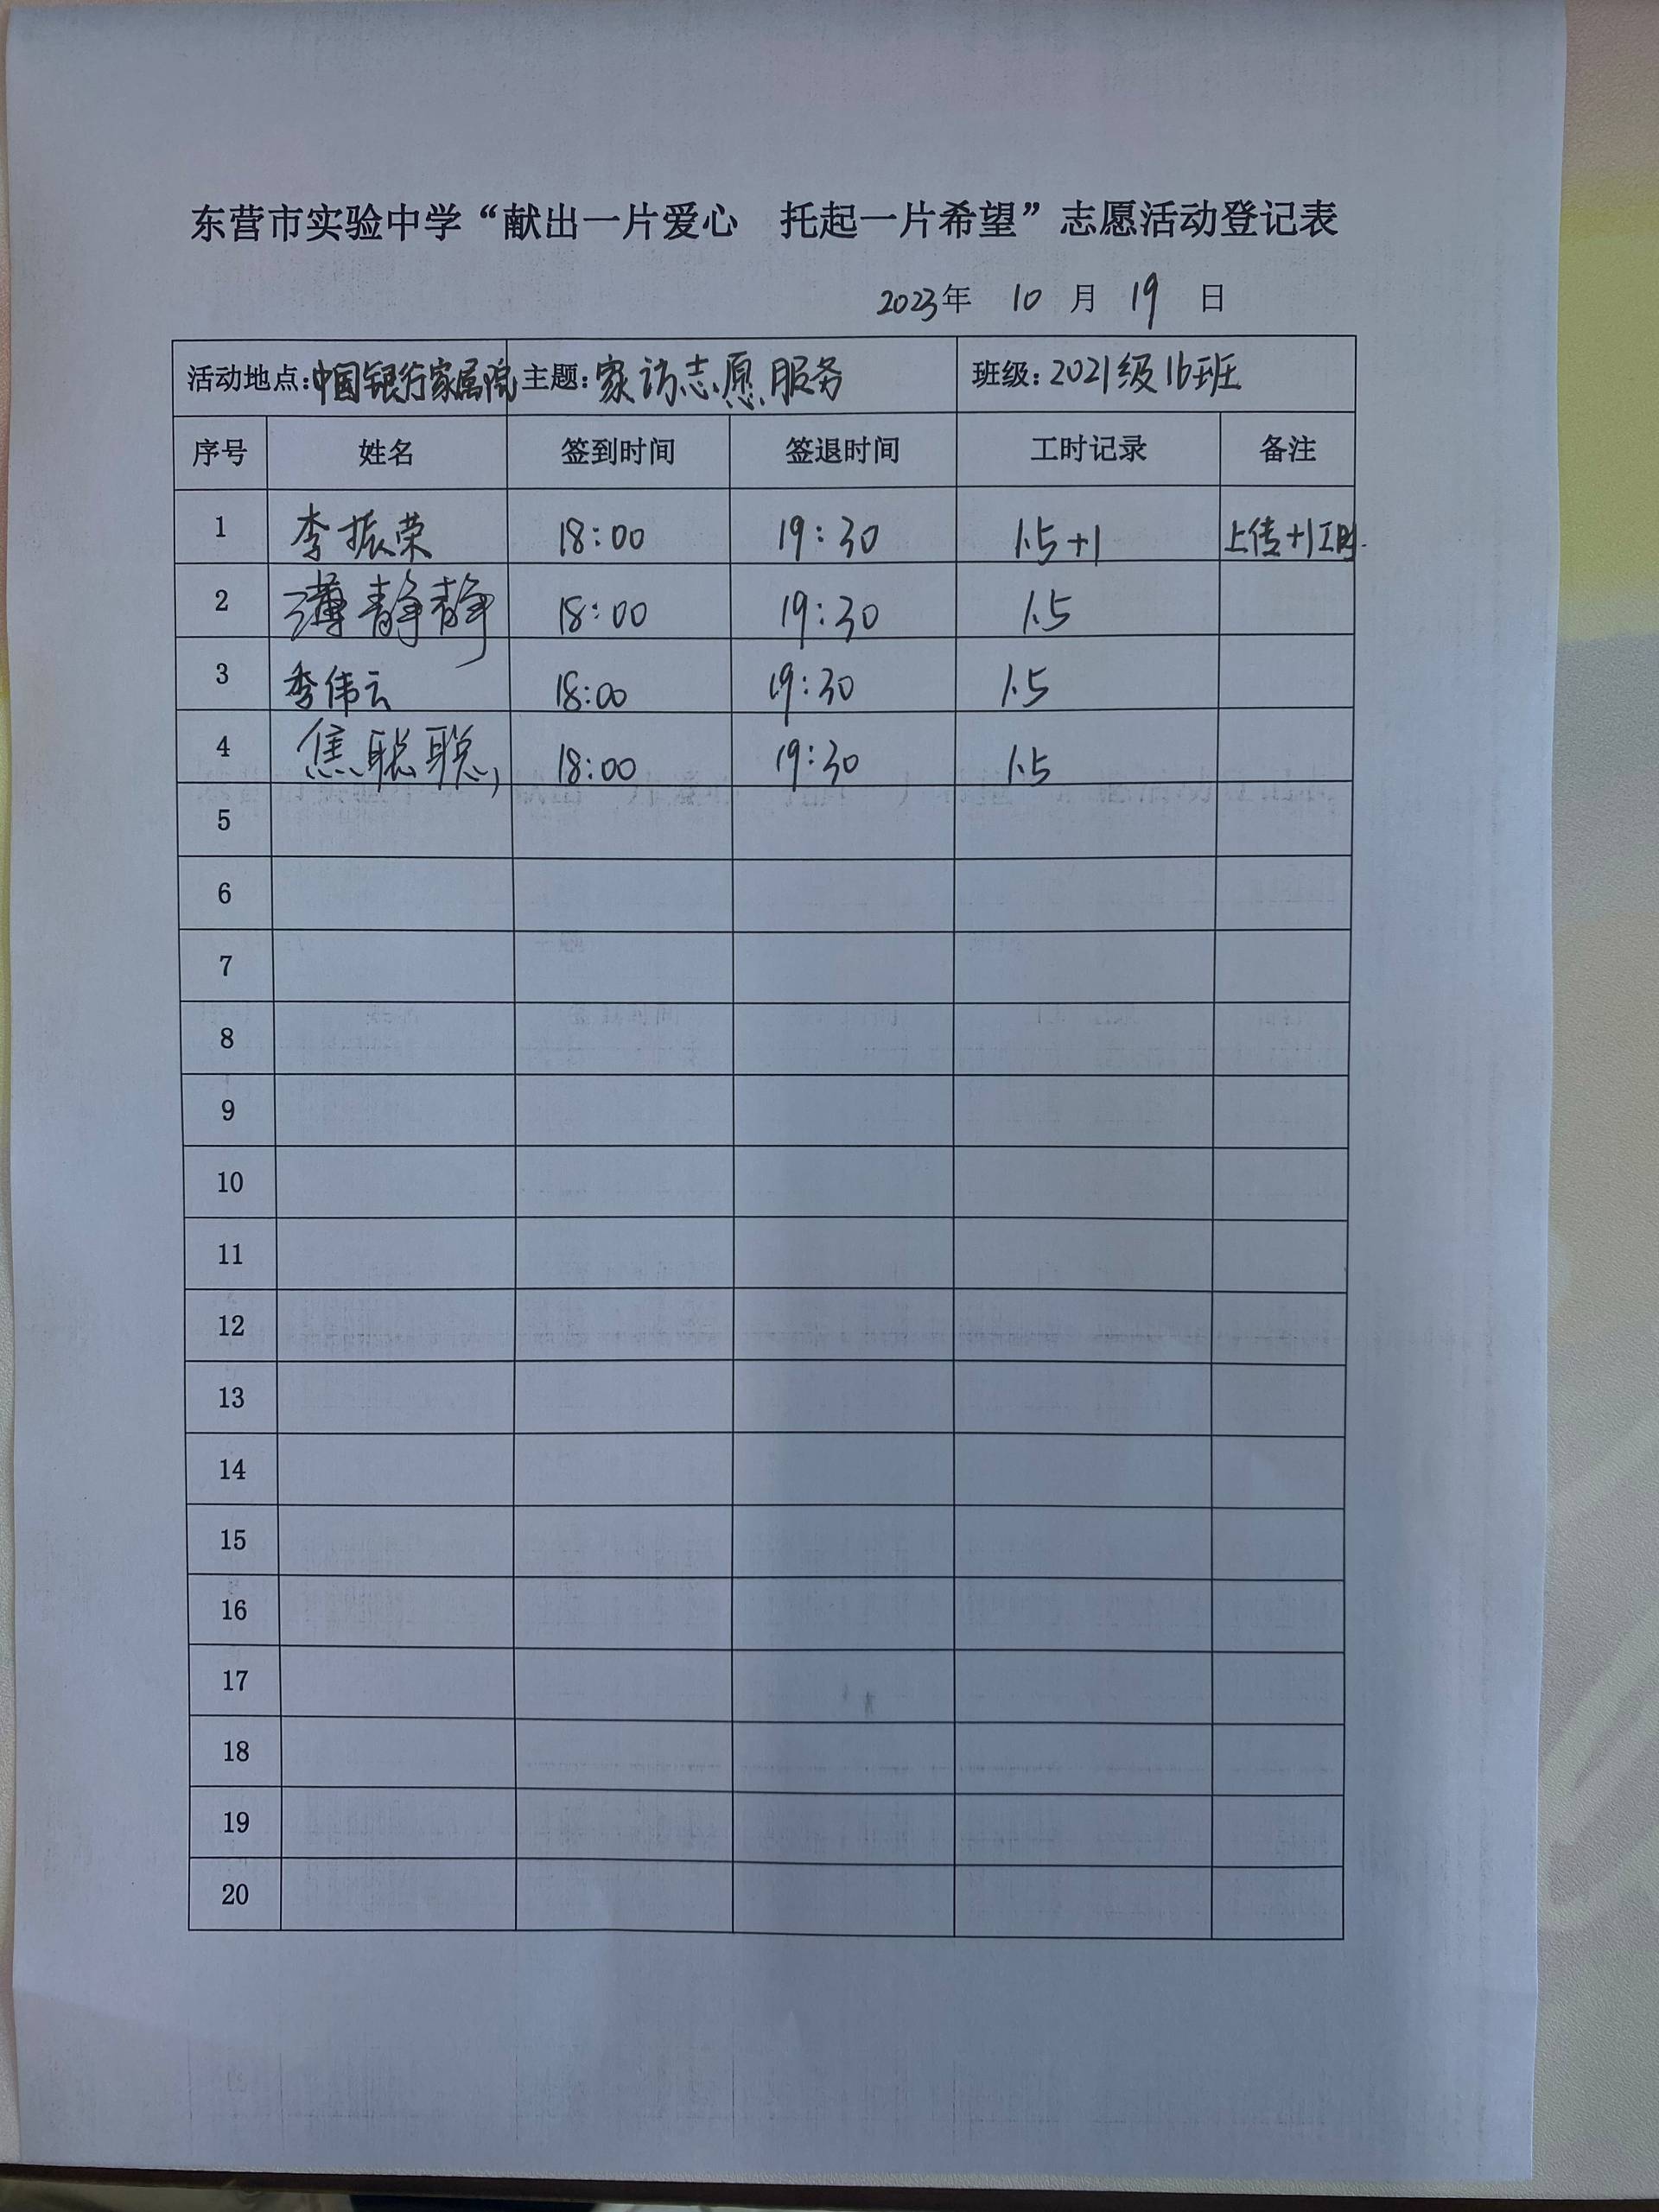 东营市实验中学“献出一片爱心 托起一片希望”志愿活动登记表
2023年 10 月 19 日
活动地点:中国银行家属院 主题:家访志愿服务 班级:2021级16班
序号 姓名 签到时间 签退时间 工时记录 备注
1 李振荣 18:00 19:30 1.5+1 上传+1工时.
2 薄静静 18:00 19:30 1.5
3 季伟云 18:00 19:30 1.5
4 焦聪聪 18:00 19:30 1.5
5
6
7
8
9
10
11
12
13
14
15
16
17
18
19
20